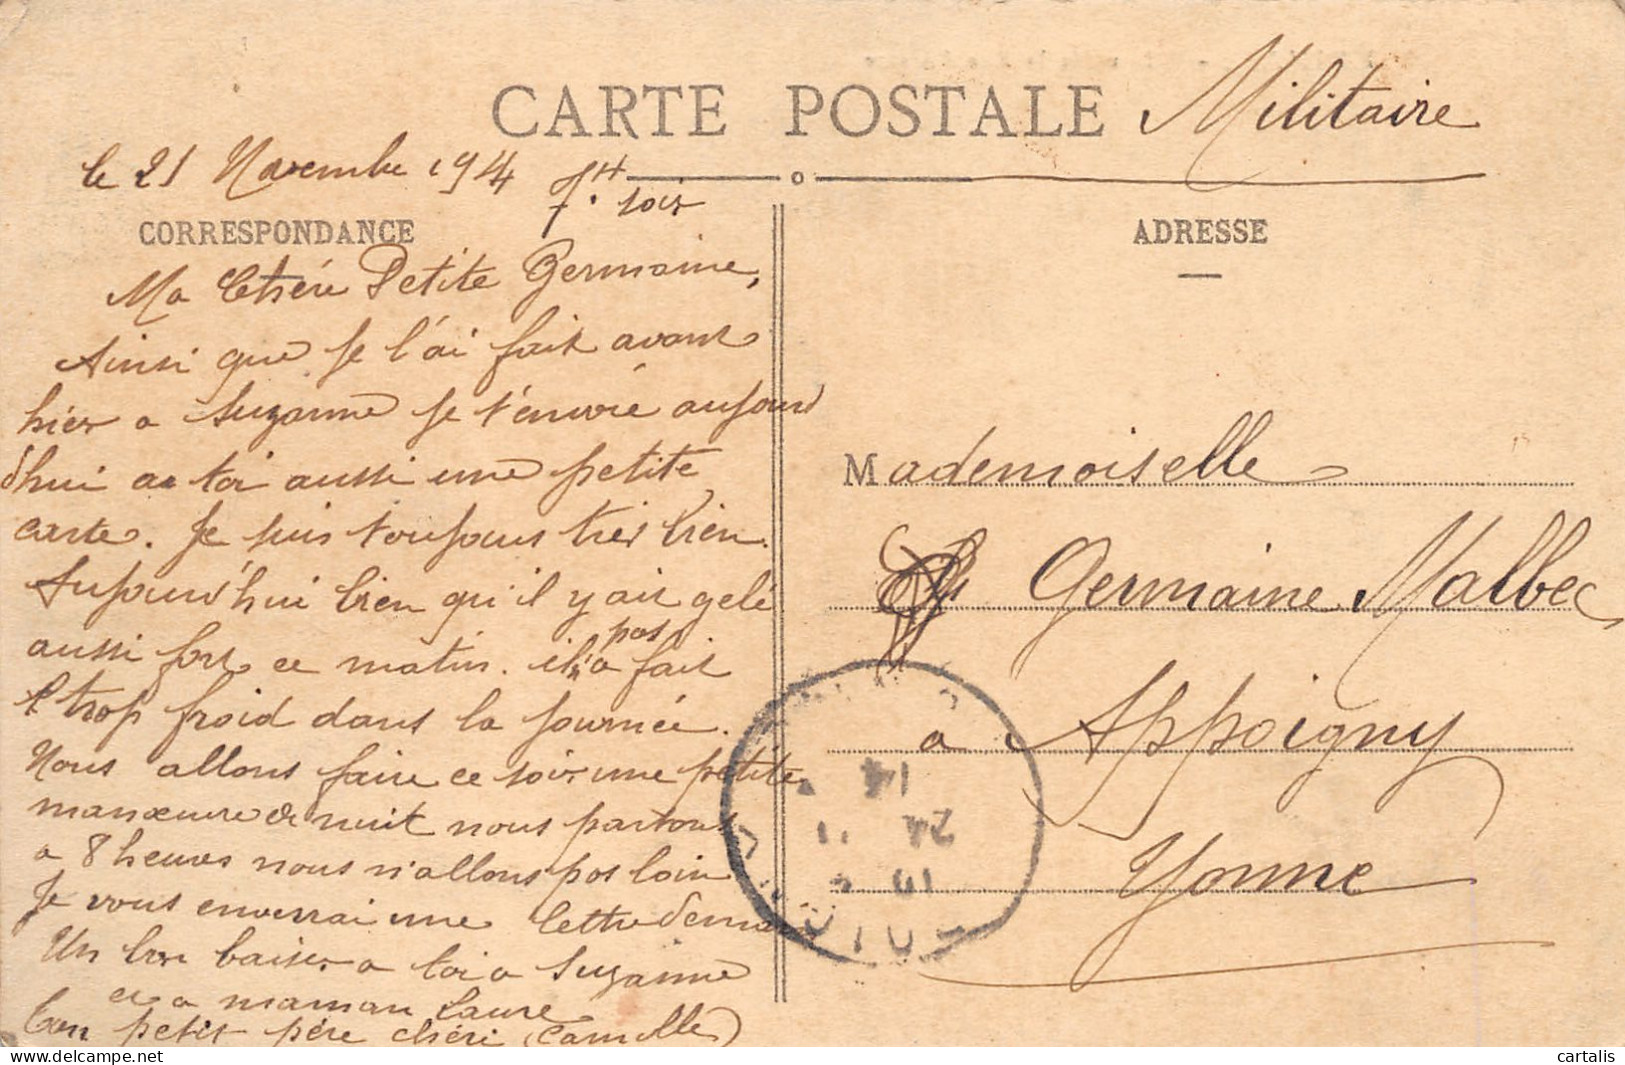 CARTE POSTALE
Militaire
le 21 Novembre 1914 7H. soir
CORRESPONDANCE
Ma Chère Petite Germaine,
Ainsi que je l'ai fait avant
hier a Suzanne je t'envoie aujourd
d'hui a toi aussi une petite
carte. Je suis toujours très bien.
Aujourd'hui bien qu'il y ait gelé
aussi fort ce matin. il n'a pas fait
trop froid dans la journée.
Nous allons faire ce soir une petite
manœuvre de nuit nous partons
a 8 heures nous n'allons pas loin
Je vous enverrai une lettre demain
Un bon baiser a toi a Suzanne
et a maman Laure
Ton petit père chéri (Camille)
ADRESSE
Mademoiselle
Germaine Malbec
a Appoigny
Yonne
14
24 11
cartalis
Delcampe.net